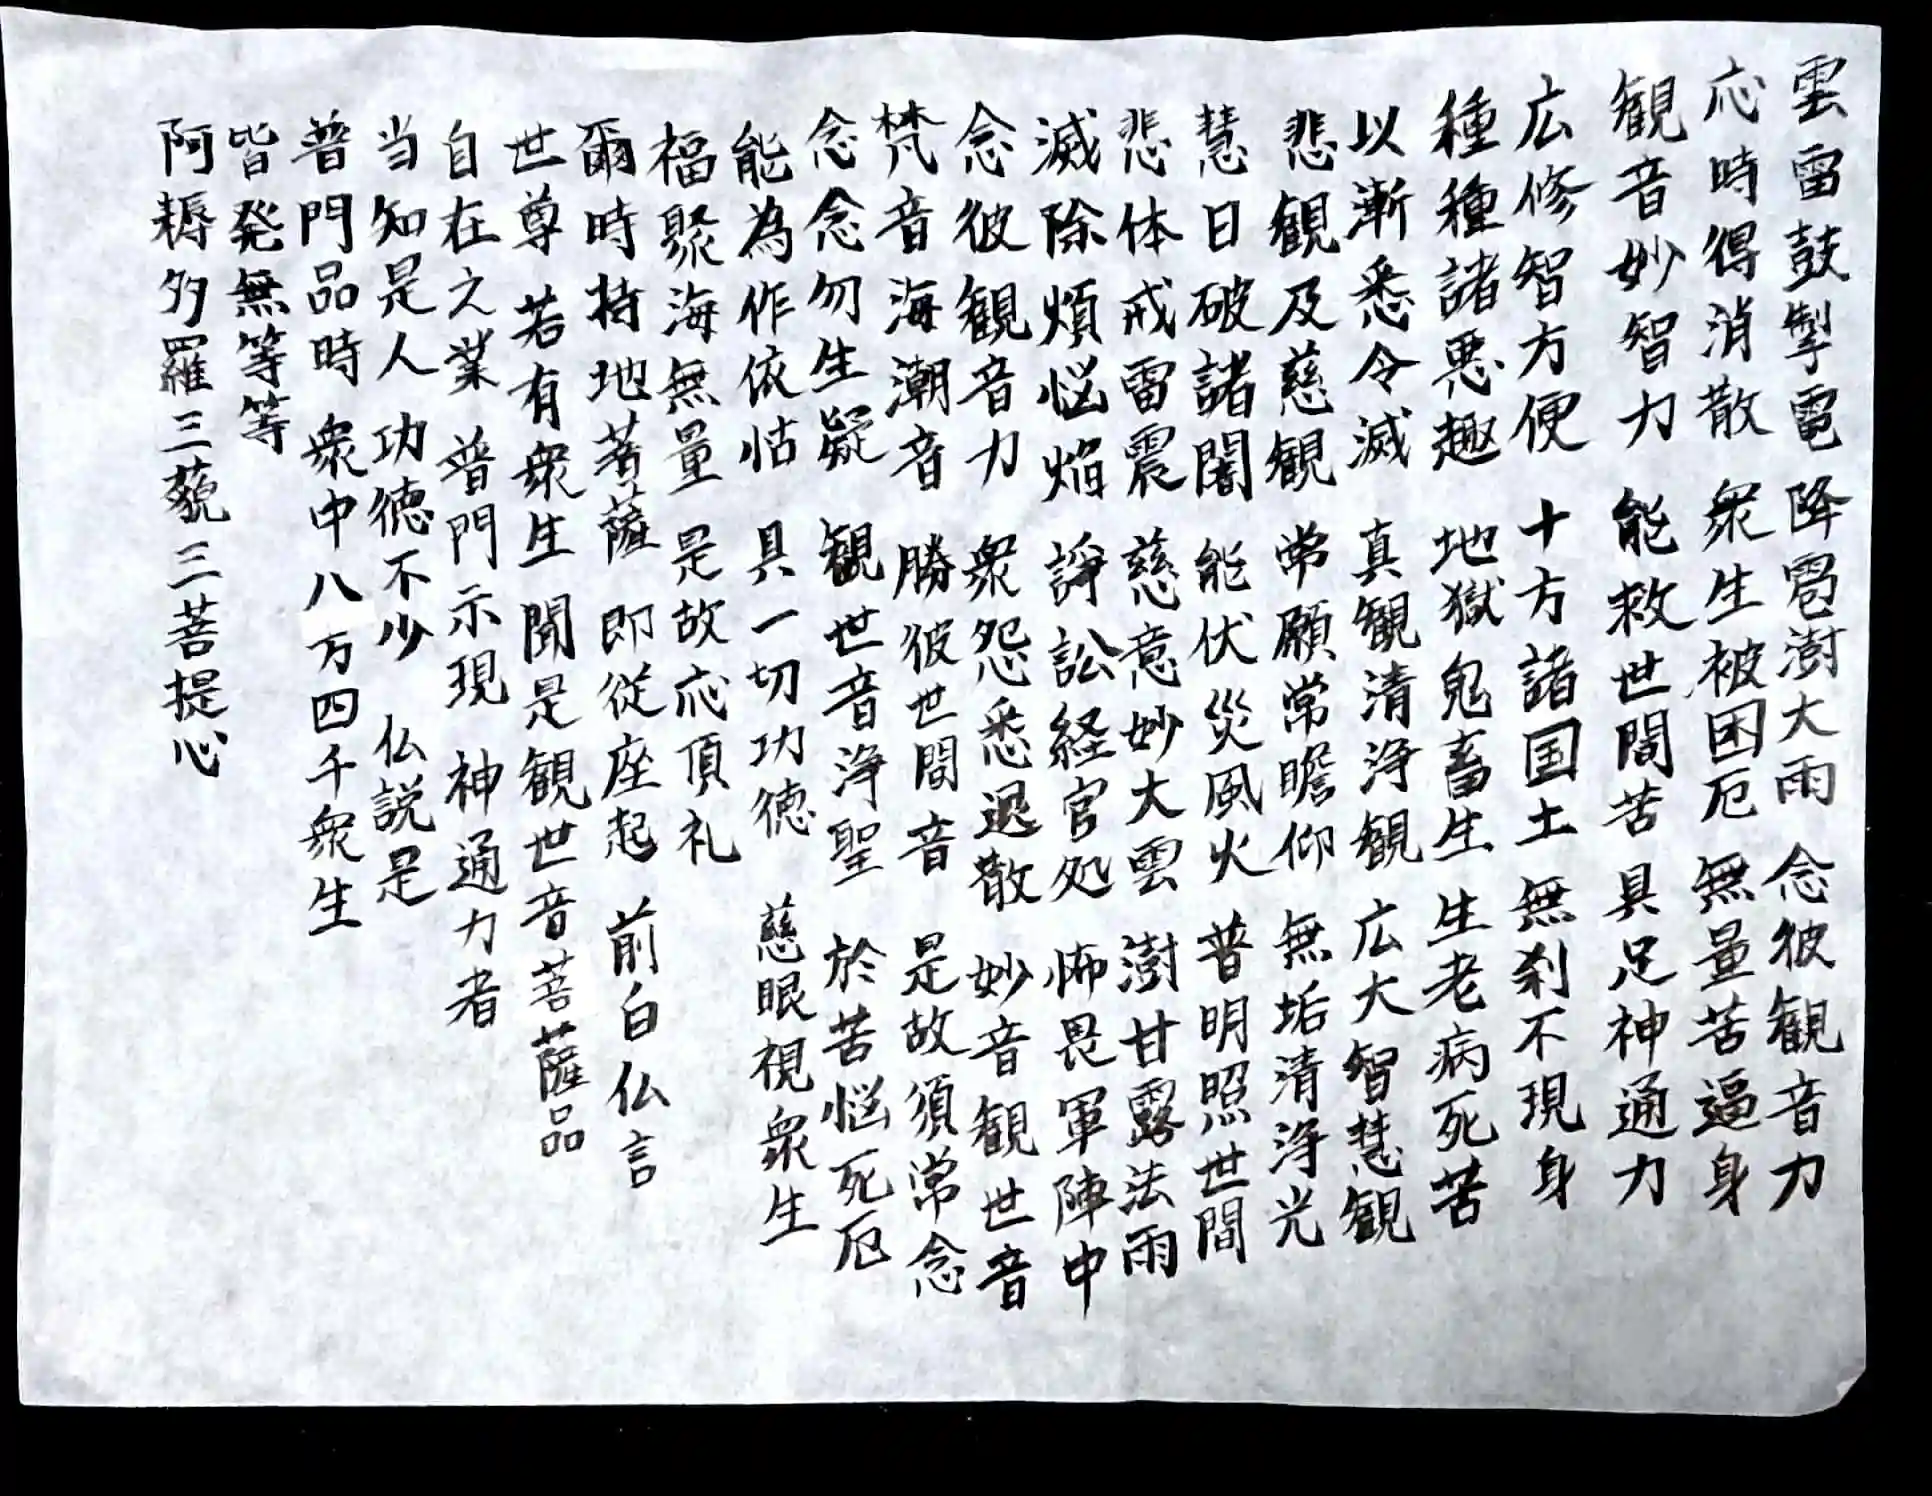 雲雷鼓掣電 降雹澍大雨 念彼観音力
応時得消散 衆生被困厄 無量苦逼身
観音妙智力 能救世間苦 具足神通力
広修智方便 十方諸国土 無刹不現身
種種諸悪趣 地獄鬼畜生 生老病死苦
以漸悉令滅 真観清浄観 広大智慧観
悲観及慈観 常願常瞻仰 無垢清浄光
慧日破諸闇 能伏災風火 普明照世間
悲体戒雷震 慈意妙大雲 澍甘露法雨
滅除煩悩焔 諍訟経官処 怖畏軍陣中
念彼観音力 衆怨悉退散 妙音観世音
梵音海潮音 勝彼世間音 是故須常念
念念勿生疑 観世音浄聖 於苦悩死厄
能為作依怙 具一切功徳 慈眼視衆生
福聚海無量 是故応頂礼
爾時持地菩薩 即従座起 前白仏言
世尊 若有衆生 聞是観世音菩薩品
自在之業 普門示現 神通力者
当知是人 功徳不少 仏説是
普門品時 衆中八万四千衆生
皆発無等等
阿耨多羅三藐三菩提心